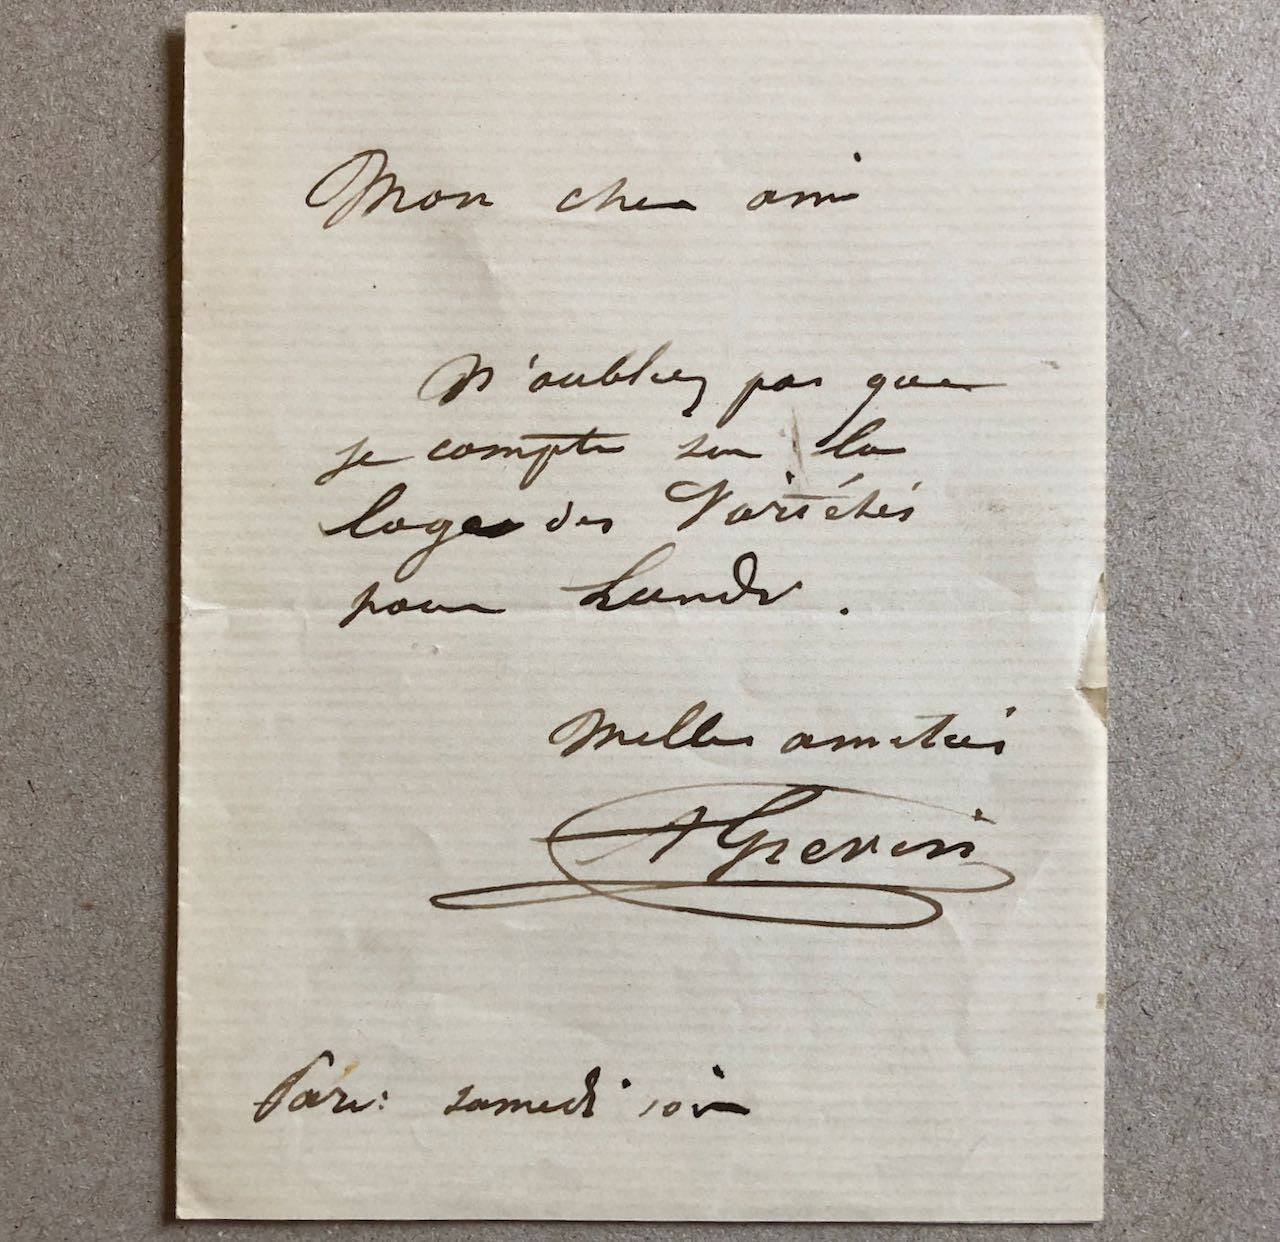 Mon cher ami
N'oubliez pas que
je compte sur la
loge des Variétés
pour Lundi.
Mille amitiés
A Grevin
Paris samedi soir